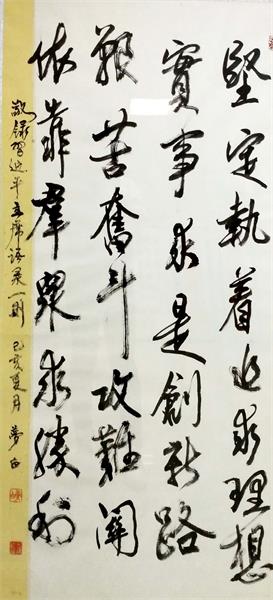 堅定執着追求理想
實事求是創新路
艱苦奮斗攻難關
依靠羣衆求勝利
敬録習近平主席語录一則 己亥夏月 夢白